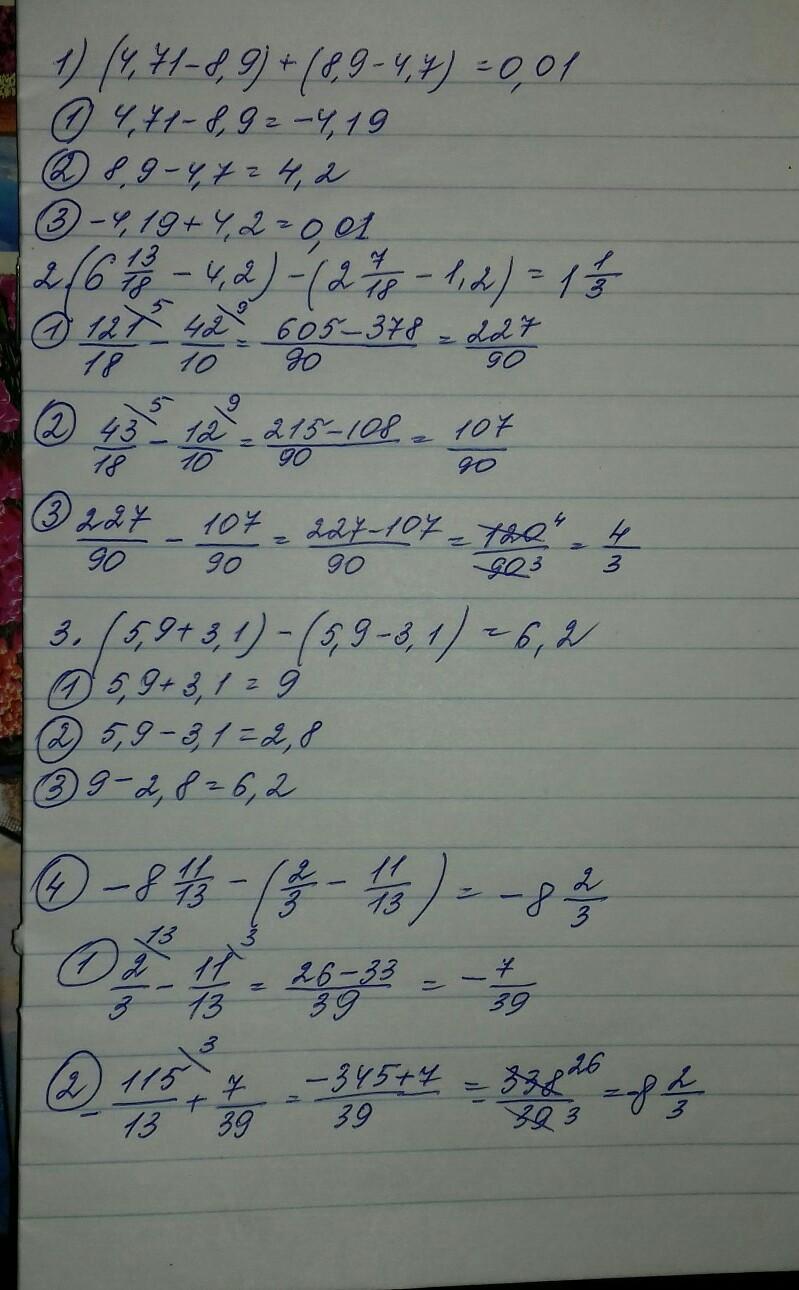 1) (4,71-8,9)+(8,9-4,7) =0,01
① 4,71-8,9=-4,19
② 8,9-4,7=4,2
③ -4,19+4,2=0,01
2.(6 13/18 - 4,2)-(2 7/18 - 1,2) = 1 1/3
① 121\5/18 - 42\9/10 = 605-378/90 = 227/90
② 43\5/18 - 12\9/10 = 215-108/90 = 107/90
③ 227/90 - 107/90 = 227-107/90 = 120 4/90 3 = 4/3
3. (5,9+3,1)-(5,9-3,1) =6,2
① 5,9+3,1=9
② 5,9-3,1=2,8
③ 9-2,8=6,2
④ -8 11/13 - (2/3 - 11/13) = -8 2/3
① 2\13/3 - 11\3/13 = 26-33/39 = -7/39
② - 115\3/13 + 7/39 = -345+7/39 = - 338 26/39 3 = -8 2/3